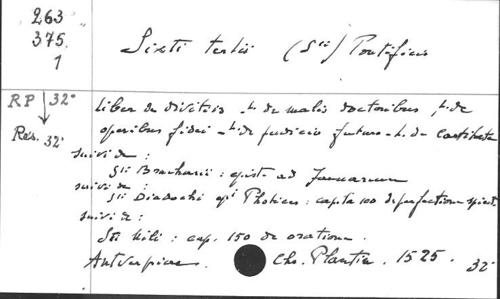 263
375.
1
Sixti tertii (Sti) Pontificis
RP 32°
Rés. 32°
Liber de divitiis - t. de malis doctoribus, t. de
operibus fidei - t. de judicio futuro - t. de castitate
suivi de :
Sti : epist. ad Januarium
suivi de :
Sti Diadochi epi Photices : capita 100 de perfectione spirit.
suivi de :
Sti Nili : cap. 150 de oratione.
Antverpiae. Chr. Plantin. 1575. 32°